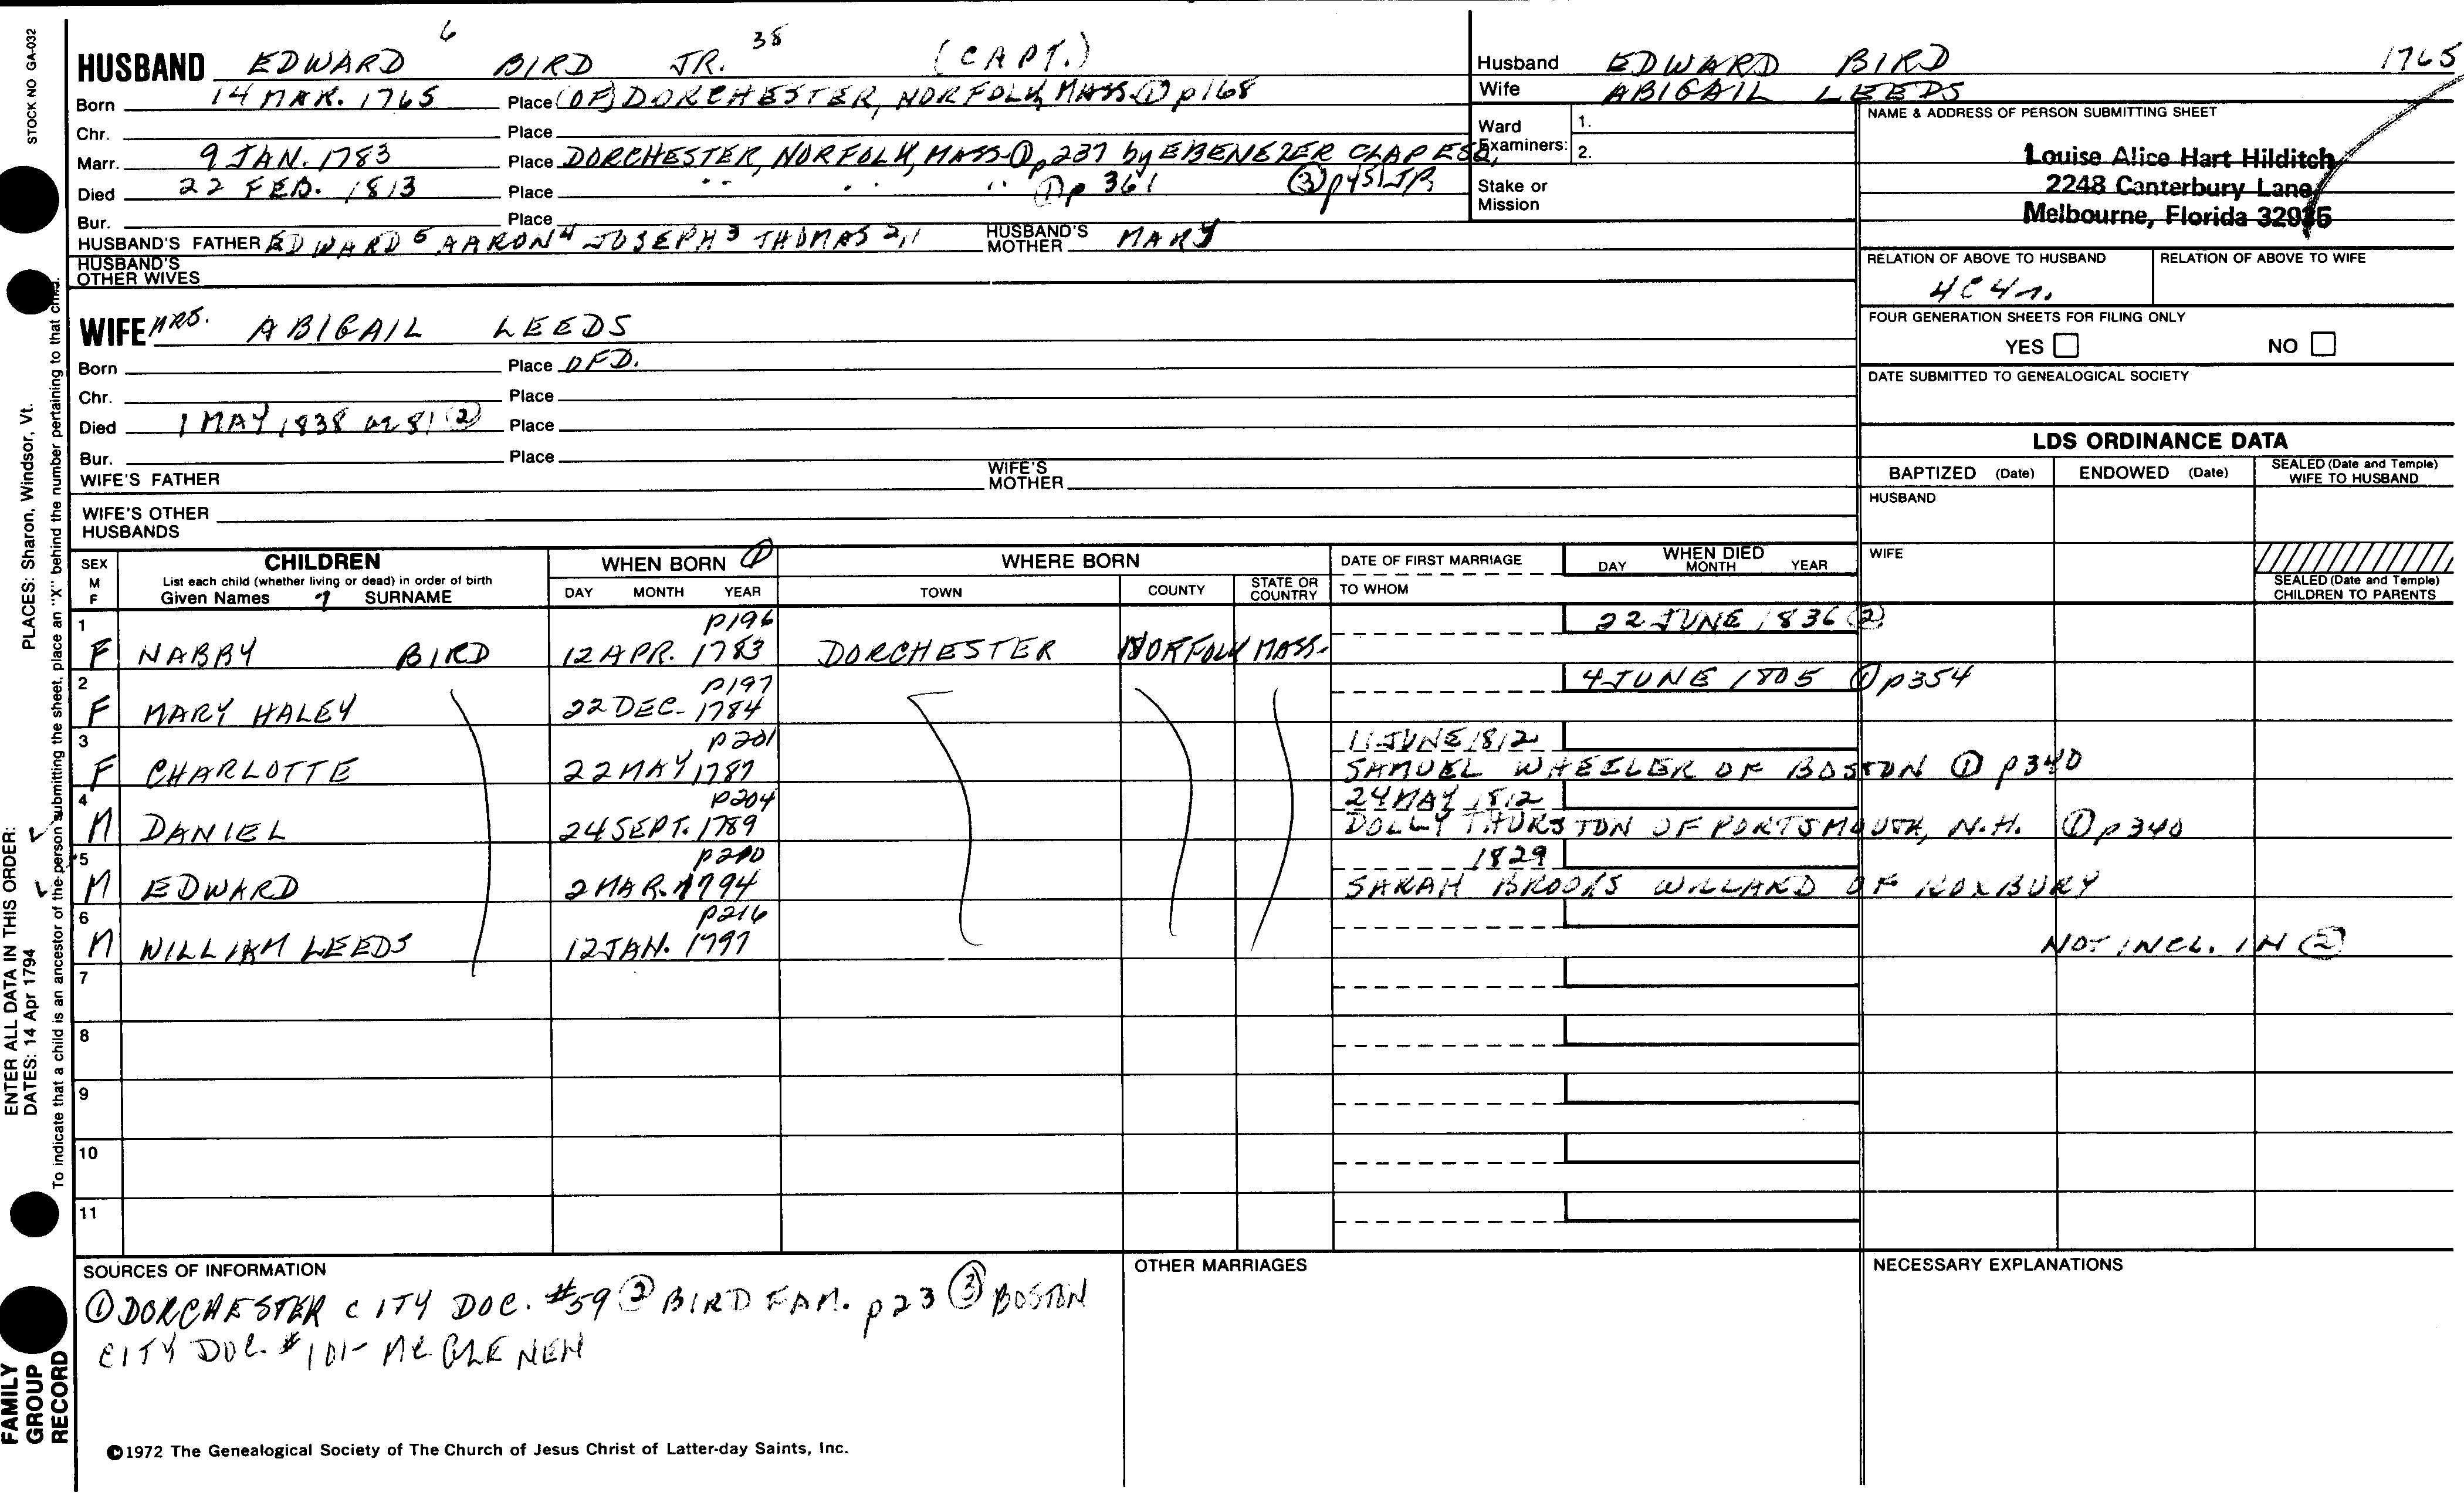 STOCK NO GA-032
HUSBAND EDWARD 6 BIRD JR. 38 (CAPT.)
Born 14 MAR. 1765 Place (OF) DORCHESTER, NORFOLK, MASS. ① p168
Chr. Place
Marr. 9 JAN. 1783 Place DORCHESTER, NORFOLK, MASS. ① p237 by EBENEZER CLAP ESQ,
Died 22 FEB. 1813 Place " " " ① p 361 ③ p45 JR
Bur. Place
HUSBAND'S FATHER EDWARD 5 AARON 4 JOSEPH 3 THOMAS 2,1 HUSBAND'S MOTHER MARY
HUSBAND'S OTHER WIVES
Husband EDWARD BIRD 1765
Wife ABIGAIL LEEDS
Ward Examiners: 1.
2.
Stake or Mission
NAME & ADDRESS OF PERSON SUBMITTING SHEET
Louise Alice Hart Hilditch
2248 Canterbury Lane
Melbourne, Florida 32935
RELATION OF ABOVE TO HUSBAND RELATION OF ABOVE TO WIFE
4C4r.
FOUR GENERATION SHEETS FOR FILING ONLY
YES NO
DATE SUBMITTED TO GENEALOGICAL SOCIETY
WIFE MRS. ABIGAIL LEEDS
Born Place OFD.
Chr. Place
Died 1 MAY 1838 ae 81 ② Place
Bur. Place
WIFE'S FATHER WIFE'S MOTHER
WIFE'S OTHER HUSBANDS
LDS ORDINANCE DATA
BAPTIZED (Date) ENDOWED (Date) SEALED (Date and Temple) WIFE TO HUSBAND
HUSBAND
WIFE
SEALED (Date and Temple) CHILDREN TO PARENTS
SEX M F
CHILDREN
List each child (whether living or dead) in order of birth
Given Names 7 SURNAME
WHEN BORN ①
DAY MONTH YEAR
WHERE BORN
TOWN COUNTY STATE OR COUNTRY
DATE OF FIRST MARRIAGE
TO WHOM
WHEN DIED
DAY MONTH YEAR
1 p196 22 JUNE 1836 ②
F NABBY BIRD 12 APR. 1783 DORCHESTER NORFOLK MASS.
2 p197 4 JUNE 1805 ① p354
F MARY HALEY 22 DEC. 1784
3 p201 11 JUNE 1812
F CHARLOTTE 22 MAY 1787 SAMUEL WHEELER OF BOSTON ① p340
4 p204 24 MAY 1812
M DANIEL 24 SEPT. 1789 DOLLY THURSTON OF PORTSMOUTH, N.H. ① p340
5 p210 1829
M EDWARD 2 MAR. 1794 SARAH BROOKS WILLARD OF ROXBURY
6 p216
M WILLIAM LEEDS 12 JAN. 1797 NOT INCL. IN ②
7
8
9
10
11
SOURCES OF INFORMATION
① DORCHESTER CITY DOC. #59 ② BIRD FAM. p23 ③ BOSTON
CITY DOC. #101- MC GLENEN
OTHER MARRIAGES
NECESSARY EXPLANATIONS
©1972 The Genealogical Society of The Church of Jesus Christ of Latter-day Saints, Inc.
ENTER ALL DATA IN THIS ORDER: PLACES: Sharon, Windsor, Vt.
DATES: 14 Apr 1794
To indicate that a child is an ancestor of the person submitting the sheet, place an "X" behind the number pertaining to that child.
FAMILY
GROUP
RECORD